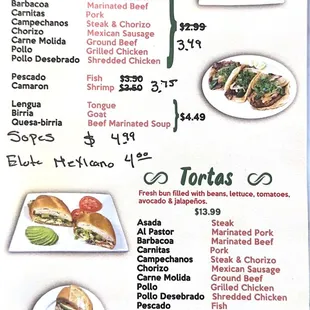 Barbacoa Marinated Beef
Carnitas Pork
Campechanos Steak & Chorizo $2.99
Chorizo Mexican Sausage
Carne Molida Ground Beef 3.49
Pollo Grilled Chicken
Pollo Desebrado Shredded Chicken
Pescado Fish $3.50
Camaron Shrimp $3.50 3.75
Lengua Tongue
Birria Goat $4.49
Quesa-birria Beef Marinated Soup
Sopes $ 4.99
Elote Mexicano 4.00
Tortas
Fresh bun filled with beans, lettuce, tomatoes,
avocado & jalapeños.
$13.99
Asada Steak
Al Pastor Marinated Pork
Barbacoa Marinated Beef
Carnitas Pork
Campechanos Steak & Chorizo
Chorizo Mexican Sausage
Carne Molida Ground Beef
Pollo Grilled Chicken
Pollo Desebrado Shredded Chicken
Pescado Fish